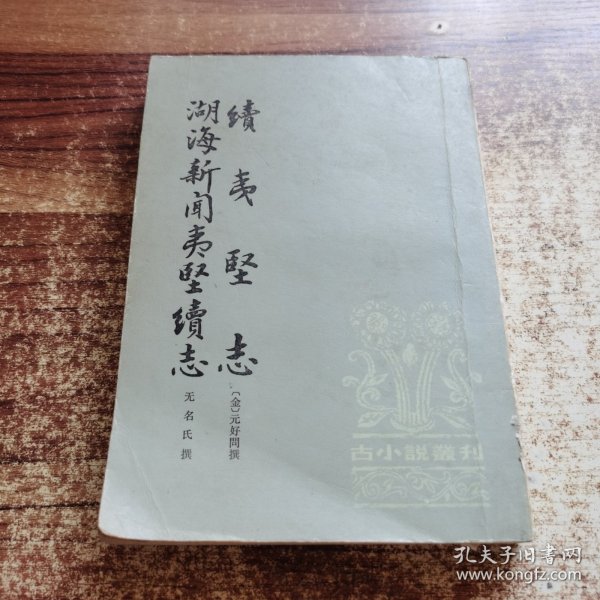 續夷堅志
〔金〕元好問撰
湖海新聞夷堅續志
无名氏撰
古小說叢刊
孔夫子旧书网
www.kongfz.com